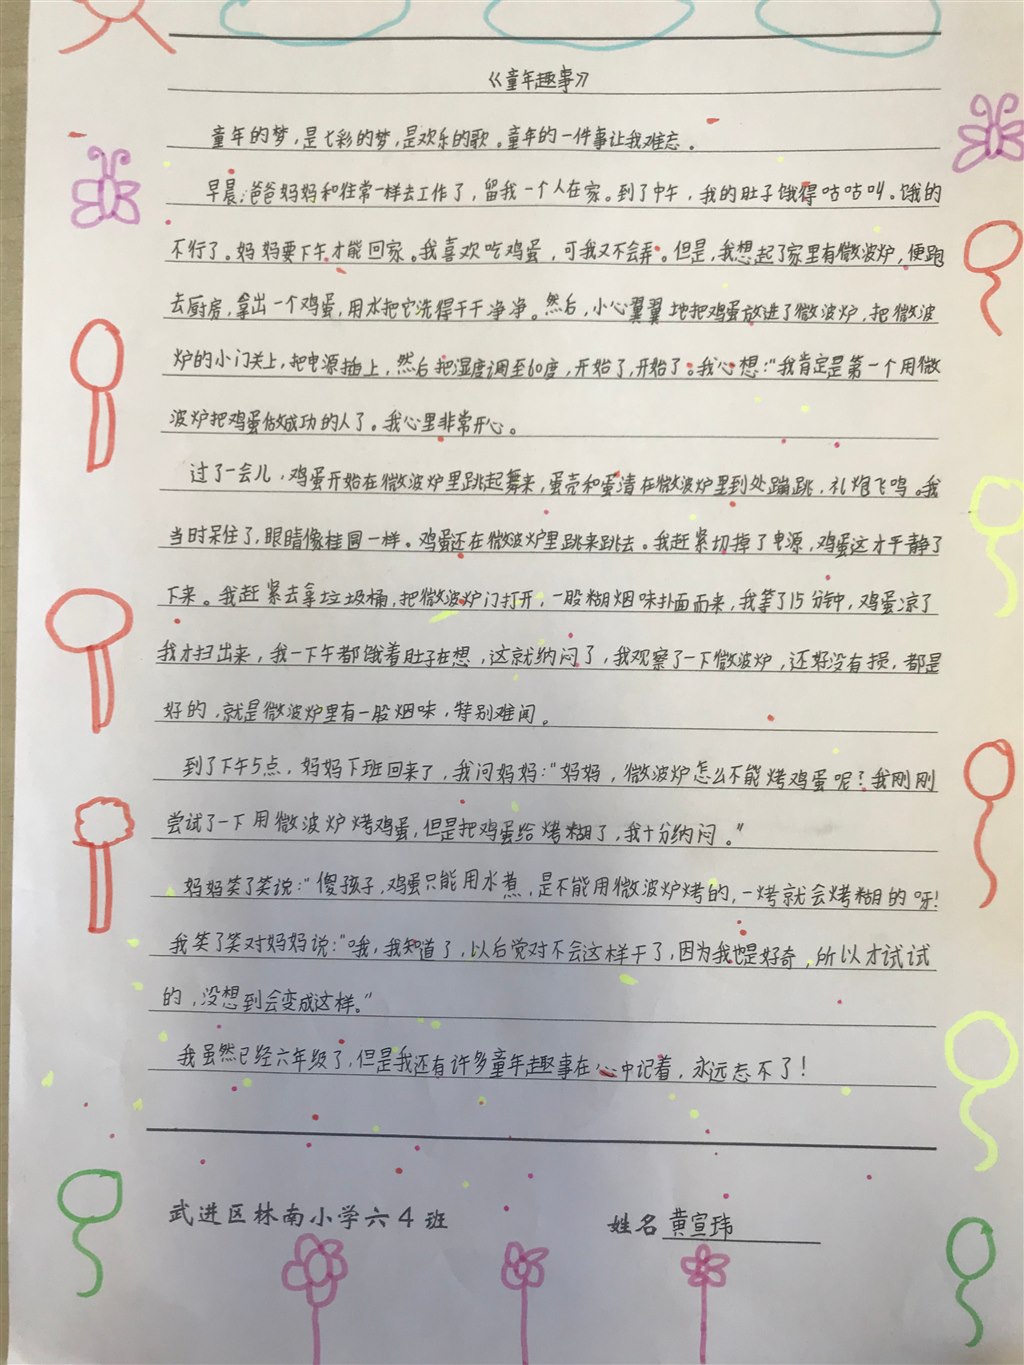 《童年趣事》
童年的梦,是七彩的梦,是欢乐的歌。童年的一件事让我难忘。
早晨,爸爸妈妈和往常一样去工作了,留我一个人在家。到了中午,我的肚子饿得咕咕叫。饿的
不行了。妈妈要下午才能回家。我喜欢吃鸡蛋,可我又不会弄。但是,我想起了家里有微波炉,便跑
去厨房,拿出一个鸡蛋,用水把它洗得干干净净。然后,小心翼翼地把鸡蛋放进了微波炉,把微波
炉的小门关上,把电源插上,然后把湿度调至60度,开始了,开始了。我心想:“我肯定是第一个用微
波炉把鸡蛋做成功的人了。我心里非常开心。
过了一会儿,鸡蛋开始在微波炉里跳起舞来,蛋壳和蛋清在微波炉里到处蹦跳,礼炮飞鸣。我
当时呆住了,眼睛像桂圆一样。鸡蛋还在微波炉里跳来跳去。我赶紧切掉了电源,鸡蛋这才平静了
下来。我赶紧去拿垃圾桶,把微波炉门打开,一股糊烟味扑面而来,我等了15分钟,鸡蛋凉了
我才扫出来,我一下午都饿着肚子在想,这就纳闷了,我观察了一下微波炉,还好没有损,都是
好的,就是微波炉里有一股烟味,特别难闻。
到了下午5点,妈妈下班回来了,我问妈妈:“妈妈,微波炉怎么不能烤鸡蛋呢?我刚刚
尝试了一下用微波炉烤鸡蛋,但是把鸡蛋给烤糊了,我十分纳闷。”
妈妈笑了笑说:“傻孩子,鸡蛋只能用水煮,是不能用微波炉烤的,一烤就会烤糊的呀!
我笑了笑对妈妈说:“哦,我知道了,以后绝对不会这样干了,因为我也是好奇,所以才试试
的,没想到会变成这样。”
我虽然已经六年级了,但是我还有许多童年趣事在心中记着,永远忘不了!
武进区林南小学六4班 姓名 黄宣玮